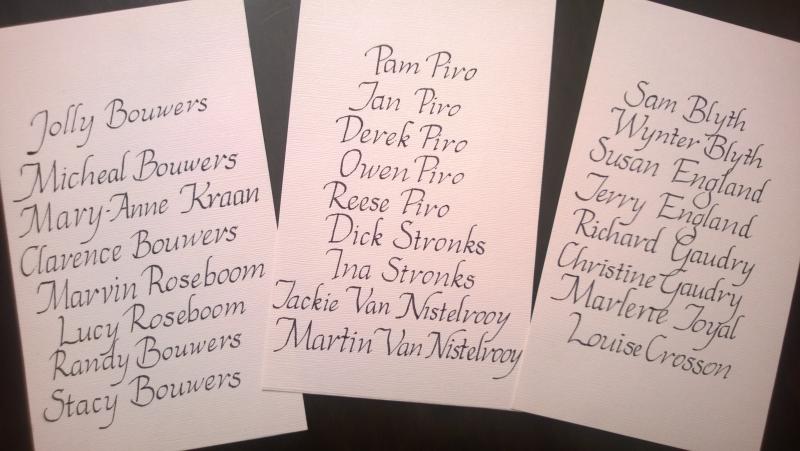 Jolly Bouwers
Micheal Bouwers
Mary-Anne Kraan
Clarence Bouwers
Marvin Roseboom
Lucy Roseboom
Randy Bouwers
Stacy Bouwers
Pam Piro
Jan Piro
Derek Piro
Owen Piro
Reese Piro
Dick Stronks
Ina Stronks
Jackie Van Nistelrooy
Martin Van Nistelrooy
Sam Blyth
Wynter Blyth
Susan England
Jerry England
Richard Gaudry
Christine Gaudry
Marlene Joyal
Louise Crosson